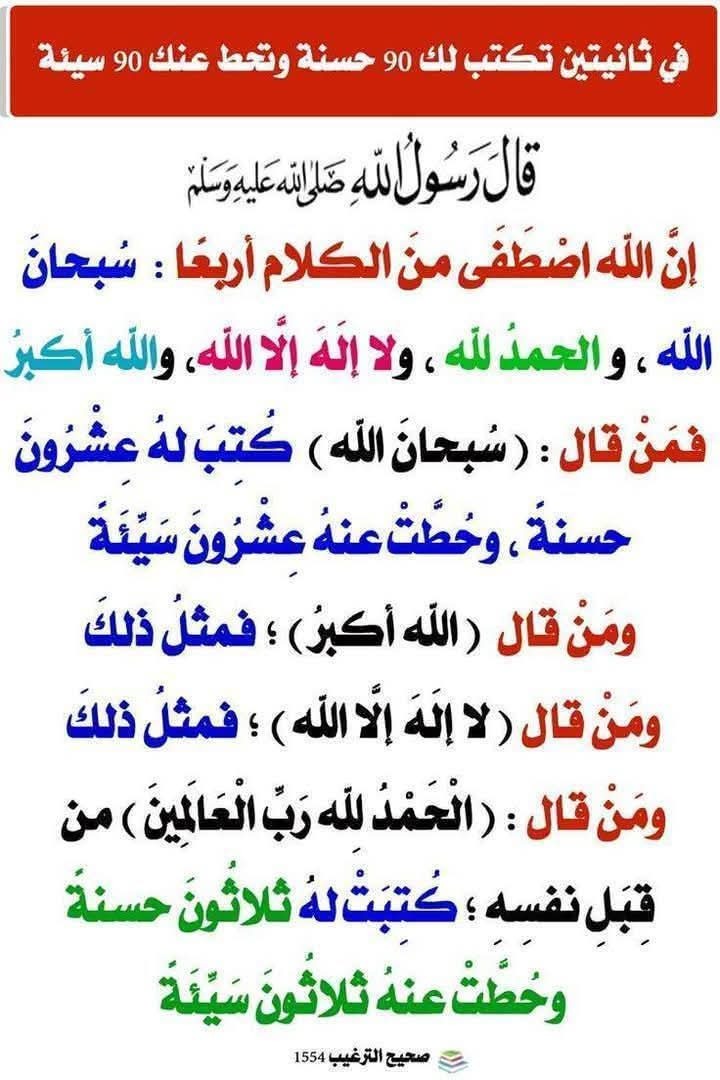 في ثانيتين تكتب لك 90 حسنة وتحط عنك 90 سيئة
قَالَ رَسُولُ اللَّهِ صَلَى اللَّه عَلَيْهِ وَسَلَّمْ
إنَّ اللّه اصْطَفَى منَ الكلام أربعًا : سُبحانَ
اللّه ، و الحمدُ للّه ، ولا إلَهَ إلَّا اللّه، واللّه أكبرُ
فمَنْ قال : ( سُبحانَ اللّه ) كُتِبَ لهُ عِشْرُونَ
حسنةً ، وحُطَّتْ عنهُ عِشْرُونَ سَيِّئَةً
ومَنْ قال ( اللّه أكبرُ ) ؛ فمثلُ ذلكَ
ومَنْ قال ( لا إلَهَ إلَّا اللّه ) ؛ فمثلُ ذلكَ
ومَنْ قال : ( الْحَمْدُ لِلّه رَبِّ الْعَالَمِينَ ) من
قِبَلِ نفسِهِ ؛ كُتِبَتْ لهُ ثلاثُونَ حسنةً
وحُطَّتْ عنهُ ثلاثُونَ سَيِّئَةً
صحيح الترغيب 1554